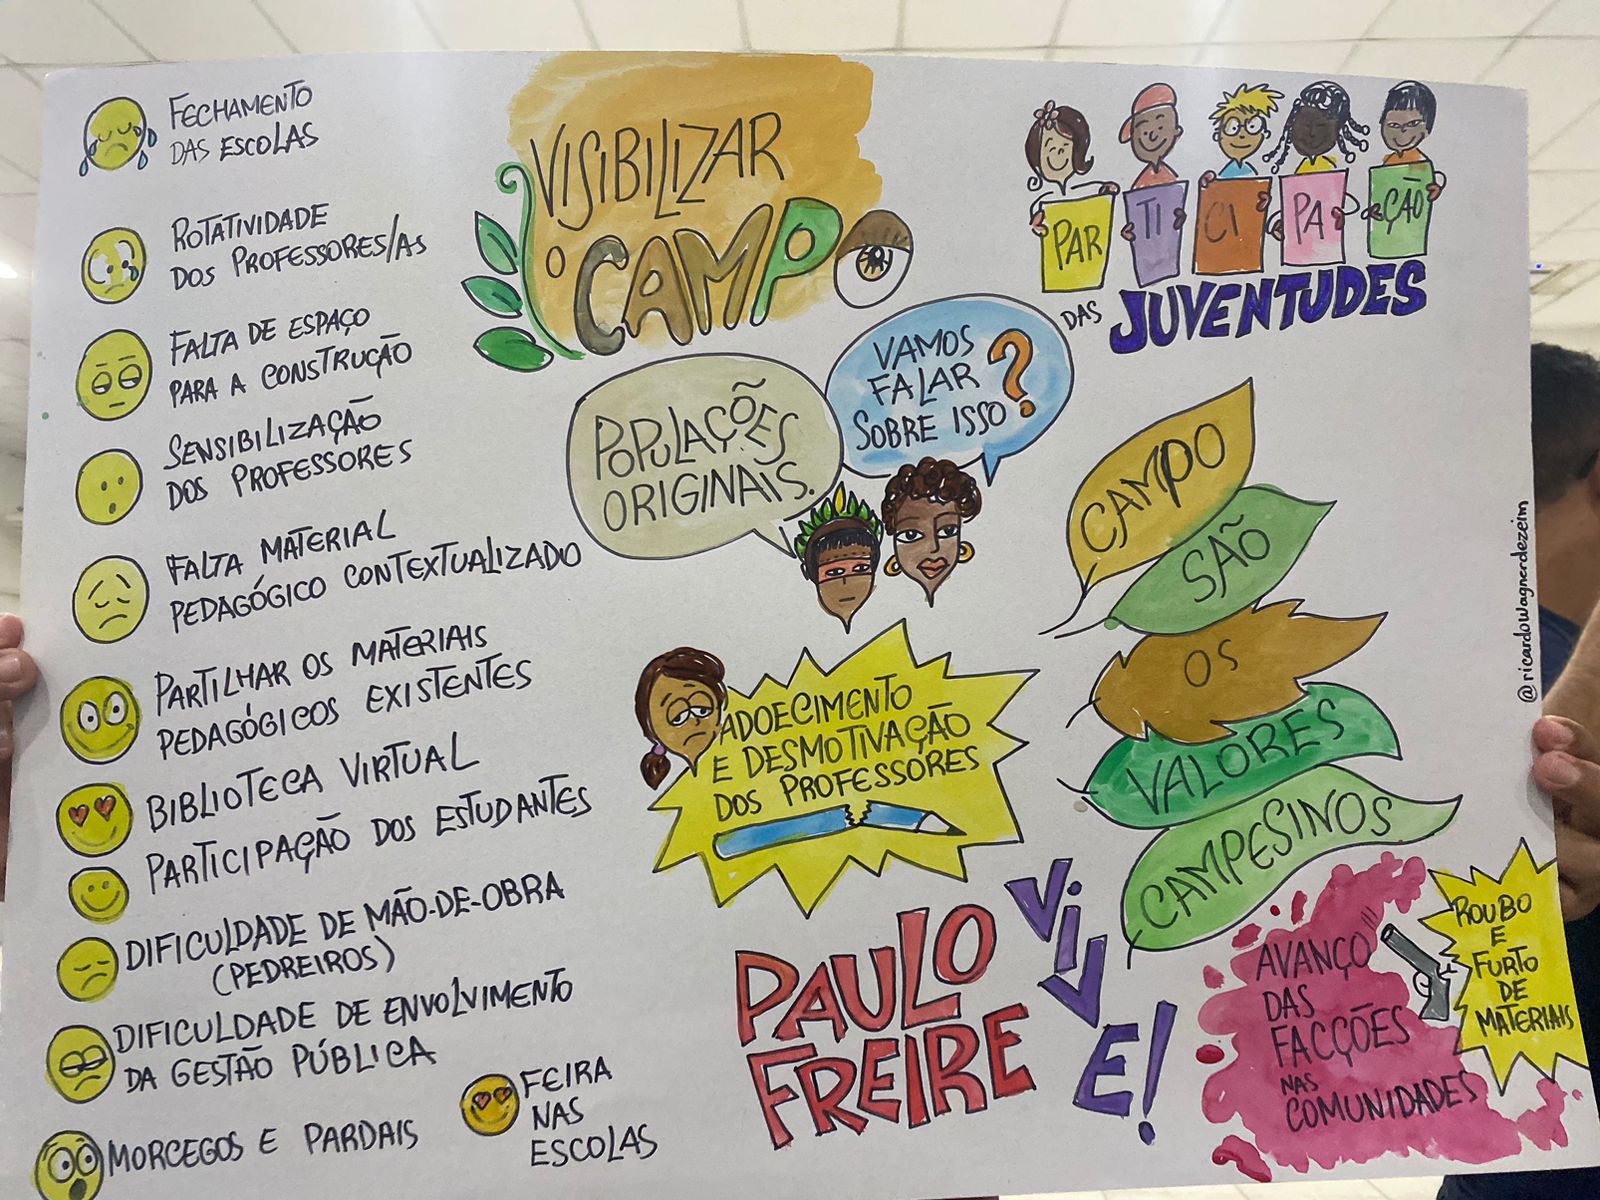 FECHAMENTO
DAS ESCOLAS
ROTATIVIDADE
DOS PROFESSORES/AS
FALTA DE ESPAÇO
PARA A CONSTRUÇÃO
SENSIBILIZAÇÃO
DOS PROFESSORES
FALTA MATERIAL
PEDAGÓGICO CONTEXTUALIZADO
PARTILHAR OS MATERIAIS
PEDAGÓGICOS EXISTENTES
BIBLIOTECA VIRTUAL
PARTICIPAÇÃO DOS ESTUDANTES
DIFICULDADE DE MÃO-DE-OBRA
(PEDREIROS)
DIFICULDADE DE ENVOLVIMENTO
DA GESTÃO PÚBLICA
MORCEGOS E PARDAIS
FEIRA
NAS
ESCOLAS
VISIBILIZAR
O CAMPO
PAR TI CI PA ÇÃO
DAS JUVENTUDES
POPULAÇÕES
ORIGINAIS.
VAMOS
FALAR
SOBRE ISSO?
CAMPO
SÃO
OS
VALORES
CAMPESINOS
ADOECIMENTO
E DESMOTIVAÇÃO
DOS PROFESSORES
PAULO
FREIRE
VIVE!
AVANÇO
DAS
FACÇÕES
NAS
COMUNIDADES
ROUBO
E
FURTO
DE
MATERIAIS
@ricardowagnerdezeim